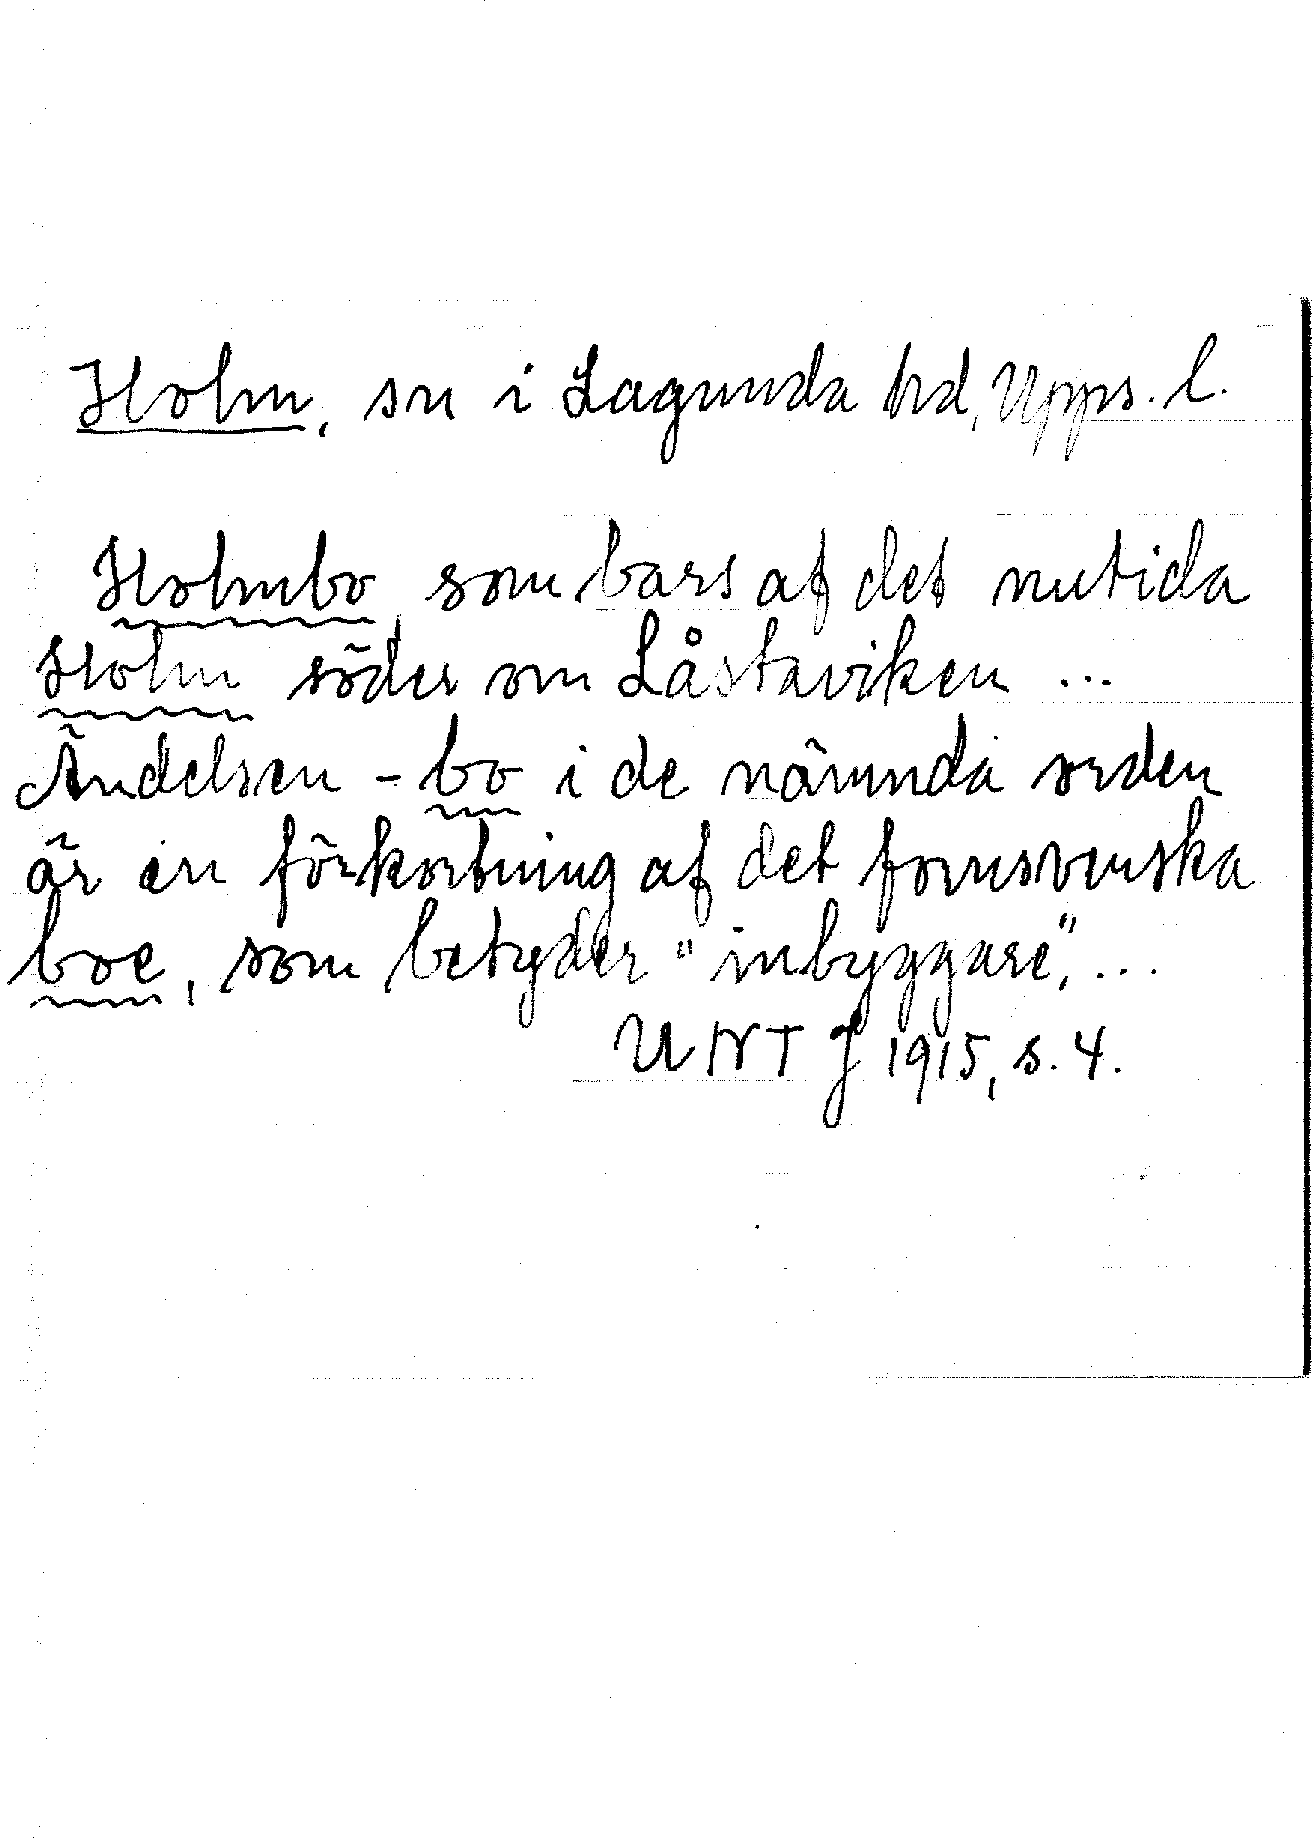 Holm, sn i Lagunda hd, Upps. l.
Holmbo, som bars af det nutida
Holm söder om Låstaviken ...
Ändelsen -bo i de nämnda orden
är en förkortning af det fornsvenska
boe, som betyder "inbyggare", ...
UNT J 1915, s. 4.